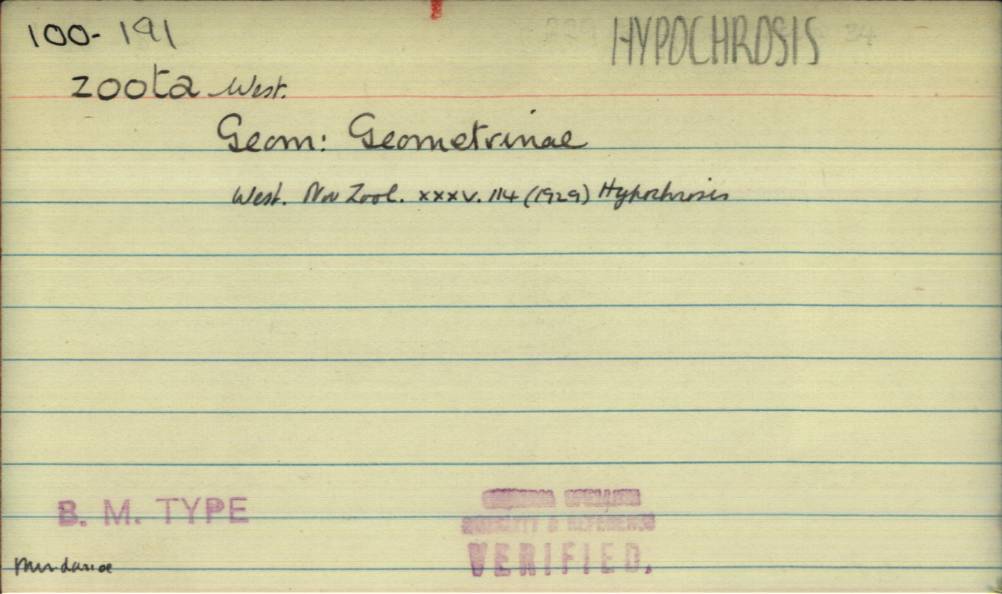 100-191
HYPOCHROSIS 34
zoota West.
Geom: Geometrinae
West. Nov Zool. xxxv. 114 (1929) Hypochrosis
B. M. TYPE
ORIGINAL SPELLING
PRIORITY & REFERENCE
VERIFIED.